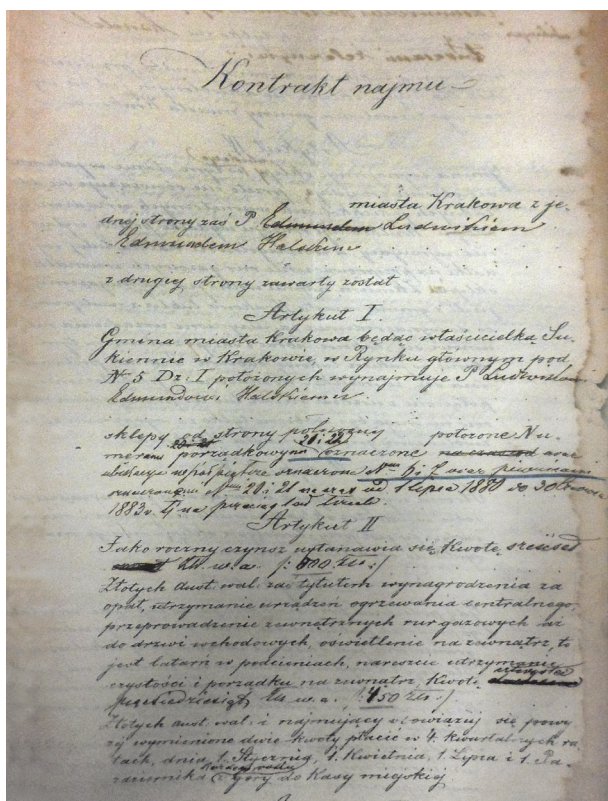 Kontrakt najmu
miasta Krakowa z je-
dnej strony zaś P. Edmundem Ludwikiem
Edmundem Halskim
z drugiej strony zawarty został
Artykuł I.
Gmina miasta Krakowa będąc właścicielką Su-
kiennic w Krakowie, w Rynku głównym pod
Nr 5 Dz. I położonych wynajmuje P. Ludwikowi
Edmundowi Halskiemu
sklepy od strony północnej położone Nu-
21 i 22
merami porządkowymi oznaczone oraz
ubikacye na piętrze oznaczone
oznaczonemi 20 i 21 na czas od 1 Lipca 1880 do 30
1883 r. tj. na przeciąg lat trzech.
Artykuł II
Jako roczny czynsz ustanawia się Kwotę sześćset
złr. w. a. /: 600 złr. :/
Złotych aust. wal. zaś tytułem wynagrodzenia za
opał, utrzymanie urządzeń ogrzewania centralnego,
przeprowadzenie zewnętrznych rur gazowych aż
do drzwi wchodowych, oświetlenie na zewnątrz, to
jest latarń w podcieniach, nareszcie utrzymanie
czystości i porządku na zewnątrz, Kwotę
pięćdziesiąt złr. w. a. /: 150 złr. :/
Złotych aust. wal. i najmujący obowiązuje się powy-
żej wymienione dwie kwoty płacić w 4 kwartalnych ra-
tach, dnia 1. Stycznia, 1. Kwietnia, 1. Lipca i 1. Pa-
ździernika każdego roku z góry do Kasy miejskiej